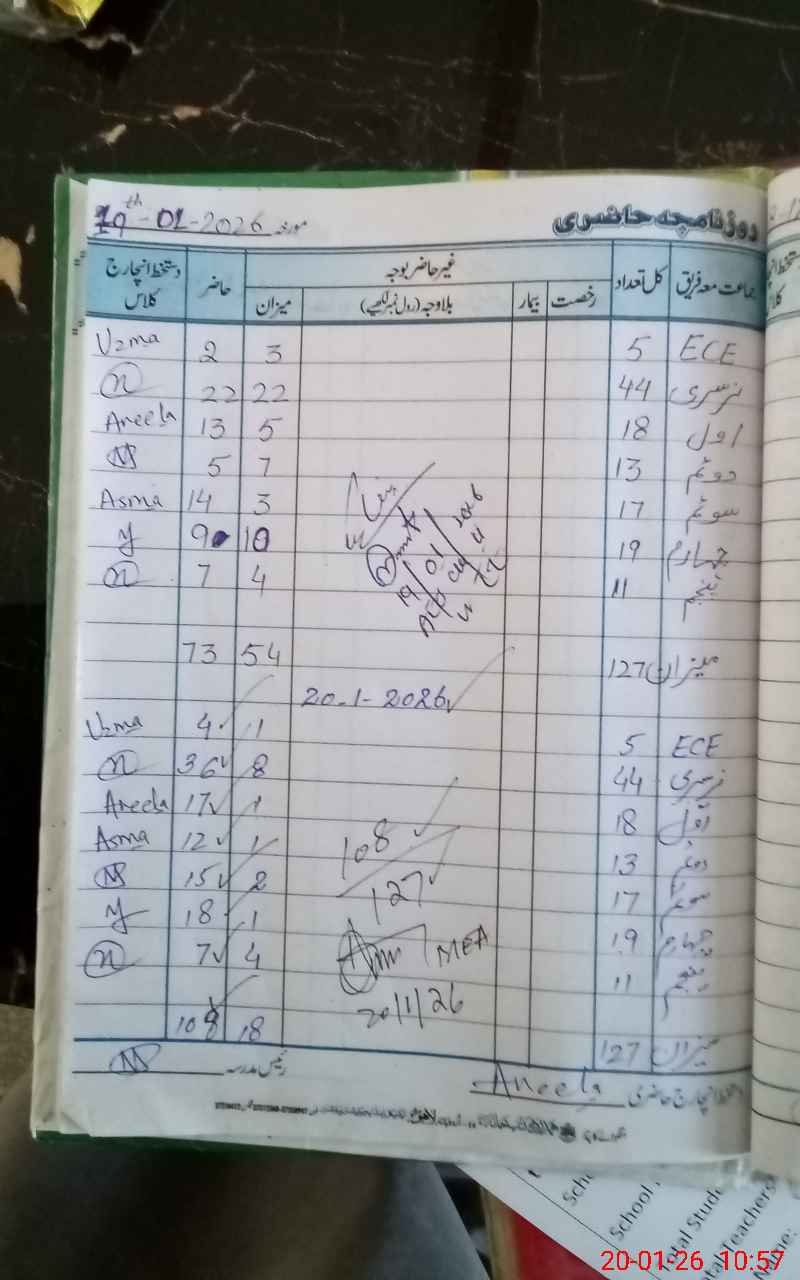 روزنامچہ حاضری مورخہ 19th-01-2026
جماعت معہ فریق کل تعداد غیر حاضر بوجہ حاضر دستخط انچارج کلاس
رخصت بیمار بلاوجہ (رول نمبر لکھیے) میزان
ECE 5 3 2 Uzma
نرسری 44 22 22
اول 18 5 13 Aneela
دوئم 13 7 5
سوئم 17 3 14 Asma
چہارم 19 10 9
پنجم 11 4 7
19/01/2026
میزان 127 54 73
20-1-2026
ECE 5 1 4 Uzma
نرسری 44 8 36
اول 18 1 17 Aneela
دوئم 13 1 12 Asma
سوئم 17 2 15
چہارم 19 1 18
پنجم 11 4 7
108
127
MEA
20/1/26
میزان 127 18 108
دستخط انچارج حاضری Aneela رئیس مدرسہ
School
Total Teachers
Name:
20-01-26 10:57